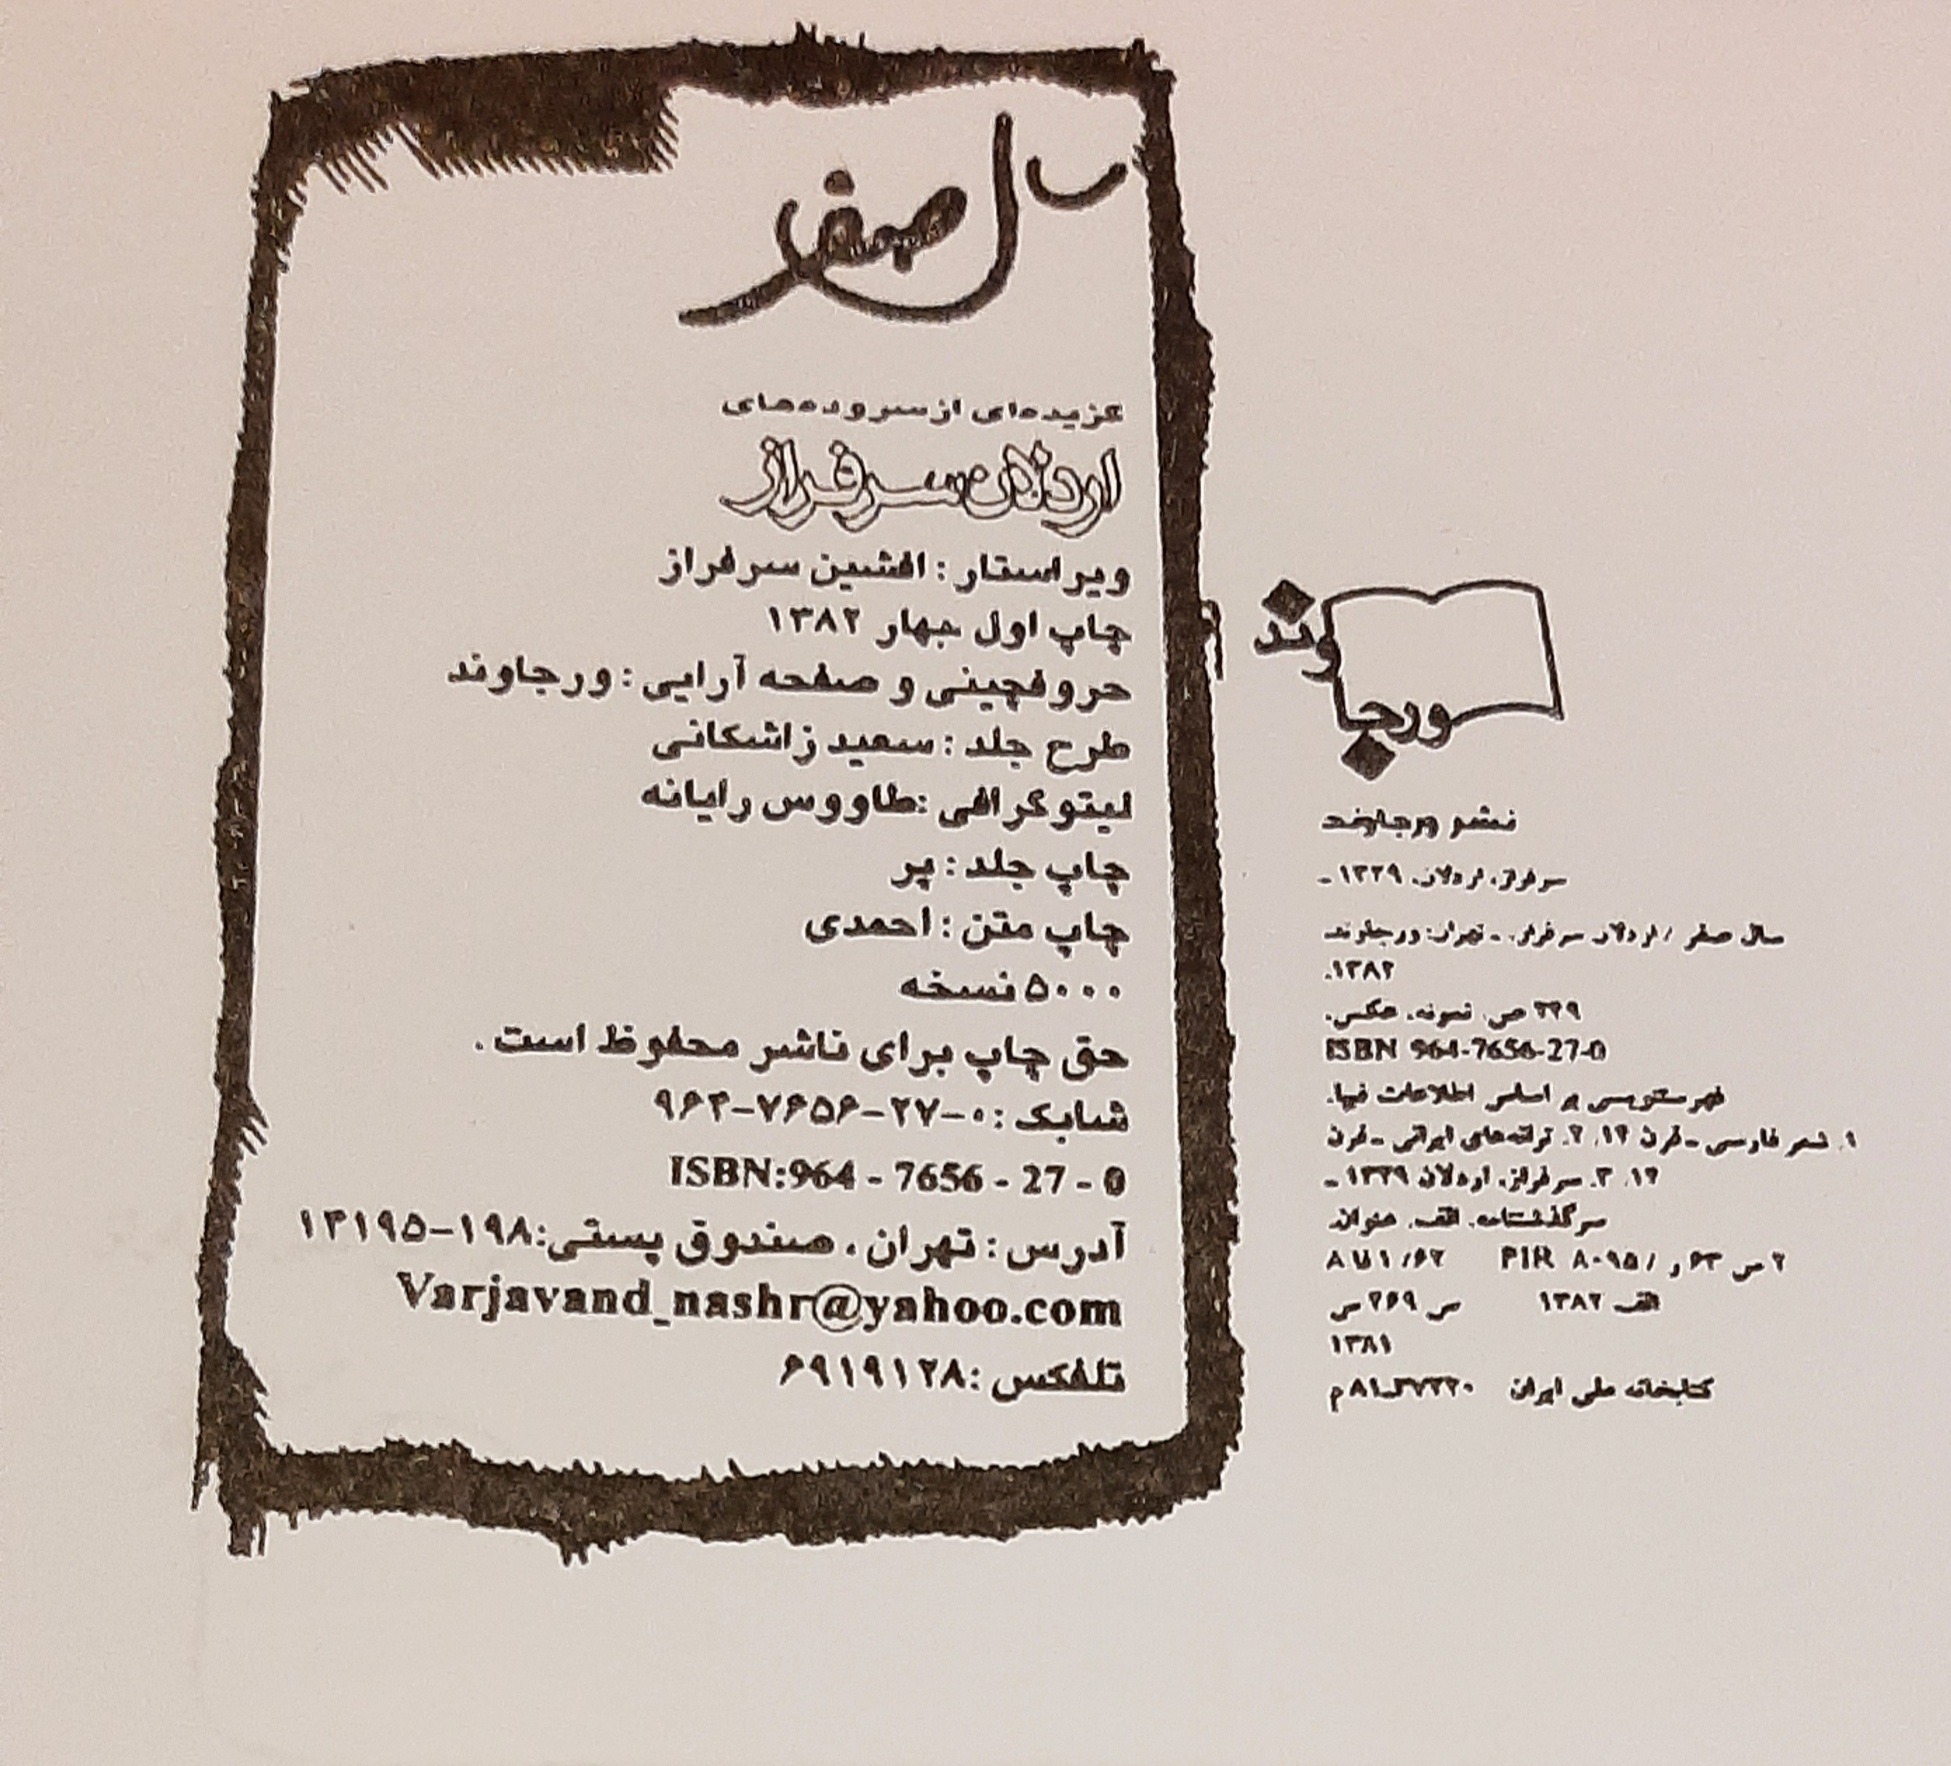 سال صفر
گزیده‌ای از سروده‌های
اردلان سرفراز
ویراستار : افشین سرفراز
چاپ اول بهار ۱۳۸۲
حروفچینی و صفحه آرایی : ورجاوند
طرح جلد : سعید زاشکانی
لیتوگرافی :طاووس رایانه
چاپ جلد : پر
چاپ متن : احمدی
۵۰۰۰ نسخه
حق چاپ برای ناشر محفوظ است .
شابک : ۰-۲۷-۷۶۵۶-۹۶۴
ISBN:964 - 7656 - 27 - 0
آدرس : تهران ، صندوق پستی:۱۹۸-۱۳۱۹۵
Varjavand_nashr@yahoo.com
تلفکس :۶۹۱۹۱۲۸
ورجاوند
نشر ورجاوند
سرفراز، اردلان، ۱۳۲۹ -
سال صفر / اردلان سرفراز. - تهران: ورجاوند
۱۳۸۲.
۲۲۹ ص. نمونه، عکس.
ISBN 964-7656-27-0
فهرستنویسی بر اساس اطلاعات فیپا.
۱. شعر فارسی - قرن ۱۴. ۲. ترانه‌های ایرانی - قرن
۱۴. ۳. سرفراز، اردلان ۱۳۲۹ -
سرگذشتنامه. الف. عنوان
۲ س ۶۳ ر / ۸۰۹۵ PIR ۸ فا ۱/۶۲
الف ۱۳۸۲ س ۲۶۹ س
۱۳۸۱
کتابخانه ملی ایران